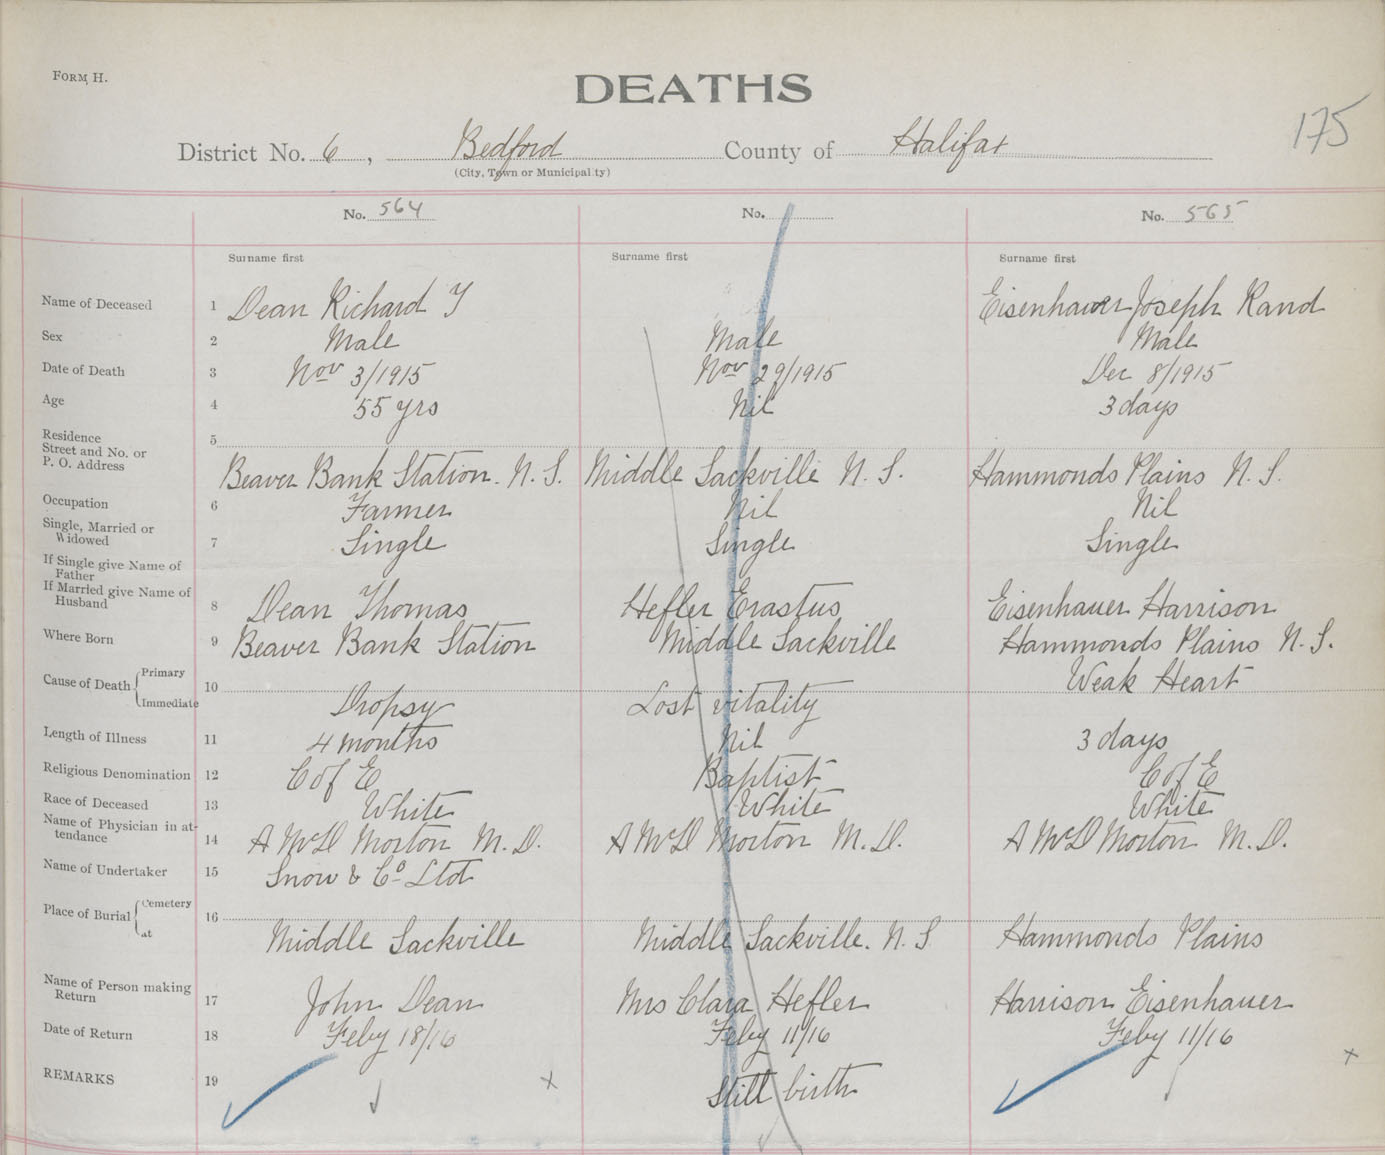 FORM H.
DEATHS
175
District No. 6, Bedford County of Halifax
(City, Town or Municipality)
No. 564 No. No. 565
Surname first Surname first Surname first
Name of Deceased 1 Dean Richard Y Eisenhauer Joseph Rand
Sex 2 Male Male Male
Date of Death 3 Nov 3/1915 Nov 29/1915 Dec 8/1915
Age 4 55 yrs Nil 3 days
Residence
Street and No. or
P. O. Address
5 Beaver Bank Station. N. S. Middle Sackville N. S. Hammonds Plains N. S.
Occupation 6 Farmer Nil Nil
Single, Married or
Widowed
7 Single Single Single
If Single give Name of
Father
If Married give Name of
Husband
8 Dean Thomas Hefler Erastus Eisenhauer Harrison
Where Born 9 Beaver Bank Station Middle Sackville Hammonds Plains N. S.
Cause of Death Primary Weak Heart
10
Immediate Dropsy Lost vitality
Length of Illness 11 4 months Nil 3 days
Religious Denomination 12 C of E Baptist C of E
Race of Deceased 13 White White White
Name of Physician in at-
tendance
14 A McD Morton M. D. A McD Morton M. D. A McD Morton M. D.
Name of Undertaker 15 Snow & Co Ltd
Place of Burial Cemetery
at
16 Middle Sackville Middle Sackville. N. S Hammonds Plains
Name of Person making
Return
17 John Dean Mrs Clara Hefler Harrison Eisenhauer
Date of Return 18 Feby 18/16 Feby 11/16 Feby 11/16
REMARKS 19 x Still birth x